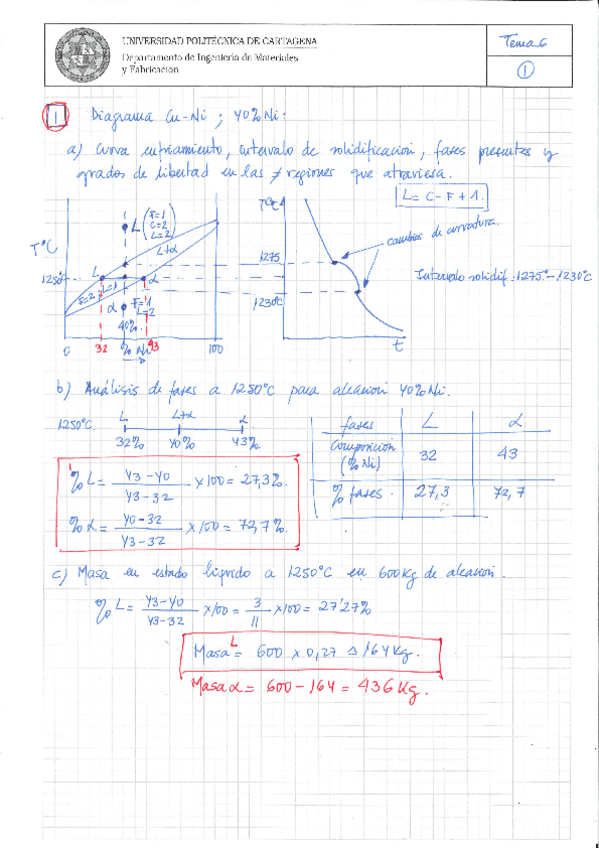 UNIVERSIDAD POLITÉCNICA DE CARTAGENA
Departamento de Ingeniería de Materiales
y Fabricación
Tema 6
1
1 Diagrama Cu-Ni ; 40% Ni:
a) Curva enfriamiento, intervalo de solidificación, fases presentes y
grados de libertad en las ≠ regiones que atraviesa.
L = C - F + 1.
T°C
L (F=1 C=2 L=2
L+α
1250°
L
α
F=2 L=1
α F=1 L=2
40%
0
32
% Ni
43
100
T°C
1275
1230°C
t
cambios de curvatura.
Intervalo solidif. 1275° - 1230°C
b) Análisis de fases a 1250°C para aleación 40% Ni.
1250°C.
L
L+α
α
32%
40%
43%
fases
L
α
Composición (% Ni)
32
43
% fases.
27,3
72,7
% L = 43-40 / 43-32 × 100 = 27,3%.
% α = 40-32 / 43-32 × 100 = 72,7%.
c) Masa en estado líquido a 1250°C en 600 Kg de aleación.
% L = 43-40 / 43-32 × 100 = 3 / 11 × 100 = 27'27%
Masa L = 600 × 0,27 ≙ 164 Kg.
Masa α = 600 - 164 = 436 Kg.